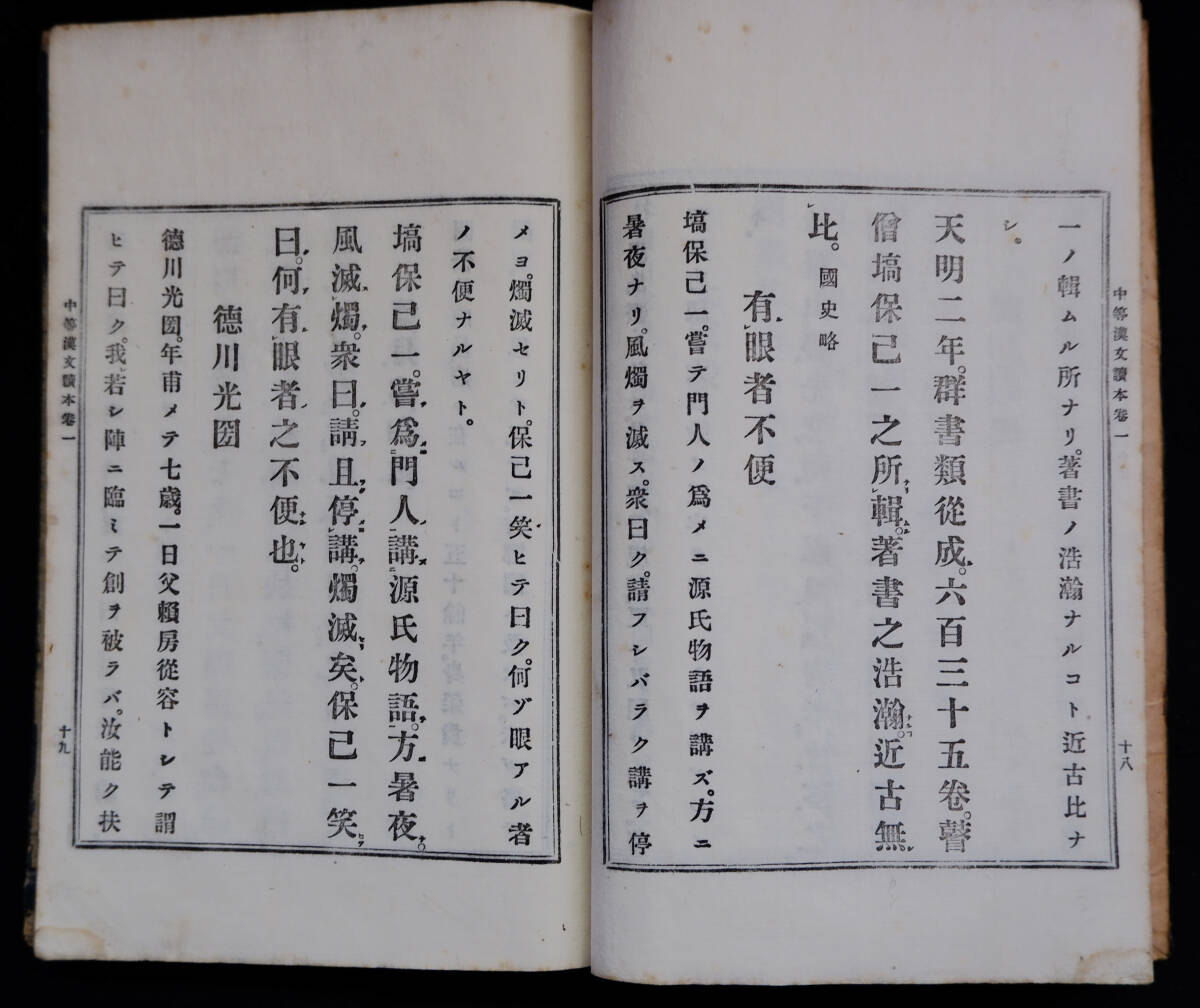 中等漢文讀本卷一
十八
一ノ輯ムル所ナリ。著書ノ浩瀚ナルコト近古比ナ
シ。
天明二年。群書類從成。六百三十五卷。瞽
僧塙保己一之所輯。著書之浩瀚。近古無
比。國史略
有眼者不便
塙保己一。嘗テ門人ノ爲メニ源氏物語ヲ講ズ。方ニ
暑夜ナリ。風燭ヲ滅ス。衆曰ク。請フシバラク講ヲ停
メヨ。燭滅セリト。保己一笑ヒテ曰ク。何ゾ眼アル者
ノ不便ナルヤト。
塙保己一。嘗爲門人講源氏物語。方暑夜。
風滅燭。衆曰。請且停講。燭滅矣。保己一笑
曰。何有眼者之不便也。
德川光圀
德川光圀。年甫メテ七歲。一日父賴房從容トシテ謂
ヒテ曰ク。我若シ陣ニ臨ミテ創ヲ被ラバ。汝能ク扶
中等漢文讀本卷一
十九